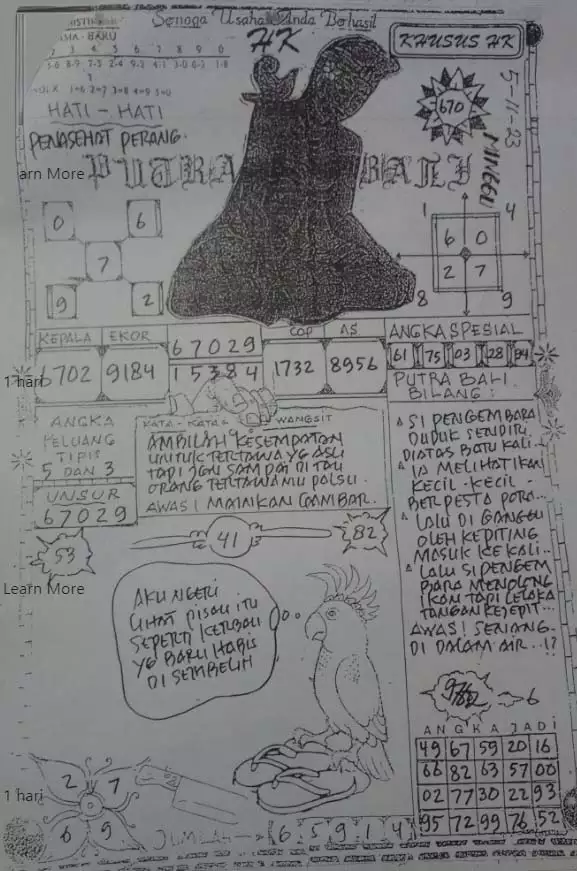 Semoga Usaha Anda Berhasil
HK
KHUSUS HK
BARU
3 4 5 6 7 8 9 0
1=6 2=7 3=8 4=9 5=0
HATI - HATI
PENASEHAT PERANG.
670
5-11-23
MINGGU
arn More
PUTRA BALI
0 6
7
9 2
1 4
6 0
2 7
8 9
KEPALA EKOR
6702 9184
67029
15384
COP AS
1732 8956
ANGKA SPESIAL
61 75 03 28 94
1 hari
PUTRA BALI
BILANG :
ANGKA
PELUANG
TIPIS
5 DAN 3
UNSUR
67029
KATA - KATA WANGSIT
AMBILAH KESEMPATAN
UNTUK TERTAWA YG ASLI
TAPI JGN SAMPAI DI TAU
ORANG TERTAWAMU PALSU.
AWAS! MAINKAN GAMBAR.
SI PENGEMBARA
DUDUK SENDIRI
DIATAS BATU KALI...
IA MELIHAT IKAN
KECIL - KECIL -
BERPESTA PORA...
LALU DI GANGGU
OLEH KEPITING
MASUK KE KALI..
LALU SI PENGEM
BARA MENOLONG
IKAN TAPI CELAKA
TANGAN KEJEPIT...
AWAS! SENANG
DI DALAM AIR...!?
53 41 82
Learn More
AKU NGERI
LIHAT PISAU ITU
SEPERTI KEMBALI
YG BARU HABIS
DI SEMBELIH
6
ANGKA JADI
49 67 59 20 16
66 82 63 57 00
02 77 30 22 93
95 72 99 76 52
2 7
6 9
1 hari
JUMLAH 6 5 9 1 4